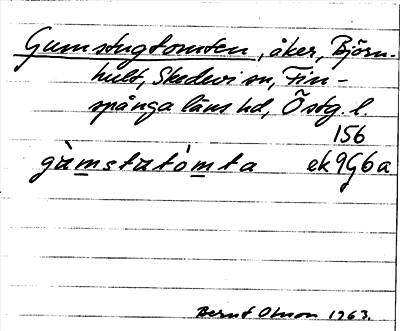 Gumstugtomten, åker, Björn-
hult, Skedevi sn, Fin-
spånga läns hd, Östg. l.
156
gàmstatómta ek 9G6a
Bernt Olsson 1963.